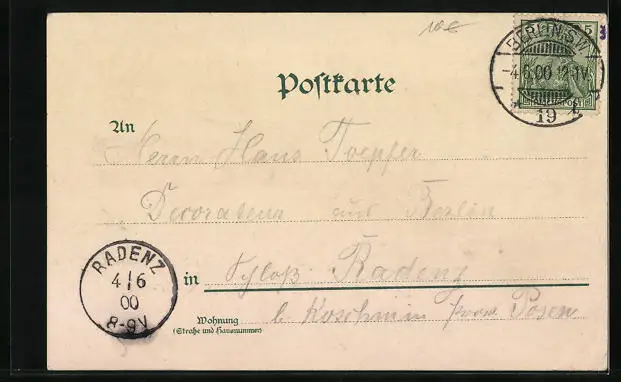 10 €
3
5
BERLIN S.W.
-4.6.00.12-1V
19
Postkarte
An
Herrn Hans Toepfer
Decorateur aus Berlin
RADENZ
4/6
00
8-9V
in Schloß Radenz
b. Koschmin Posen
Wohnung
(Straße und Hausnummer)